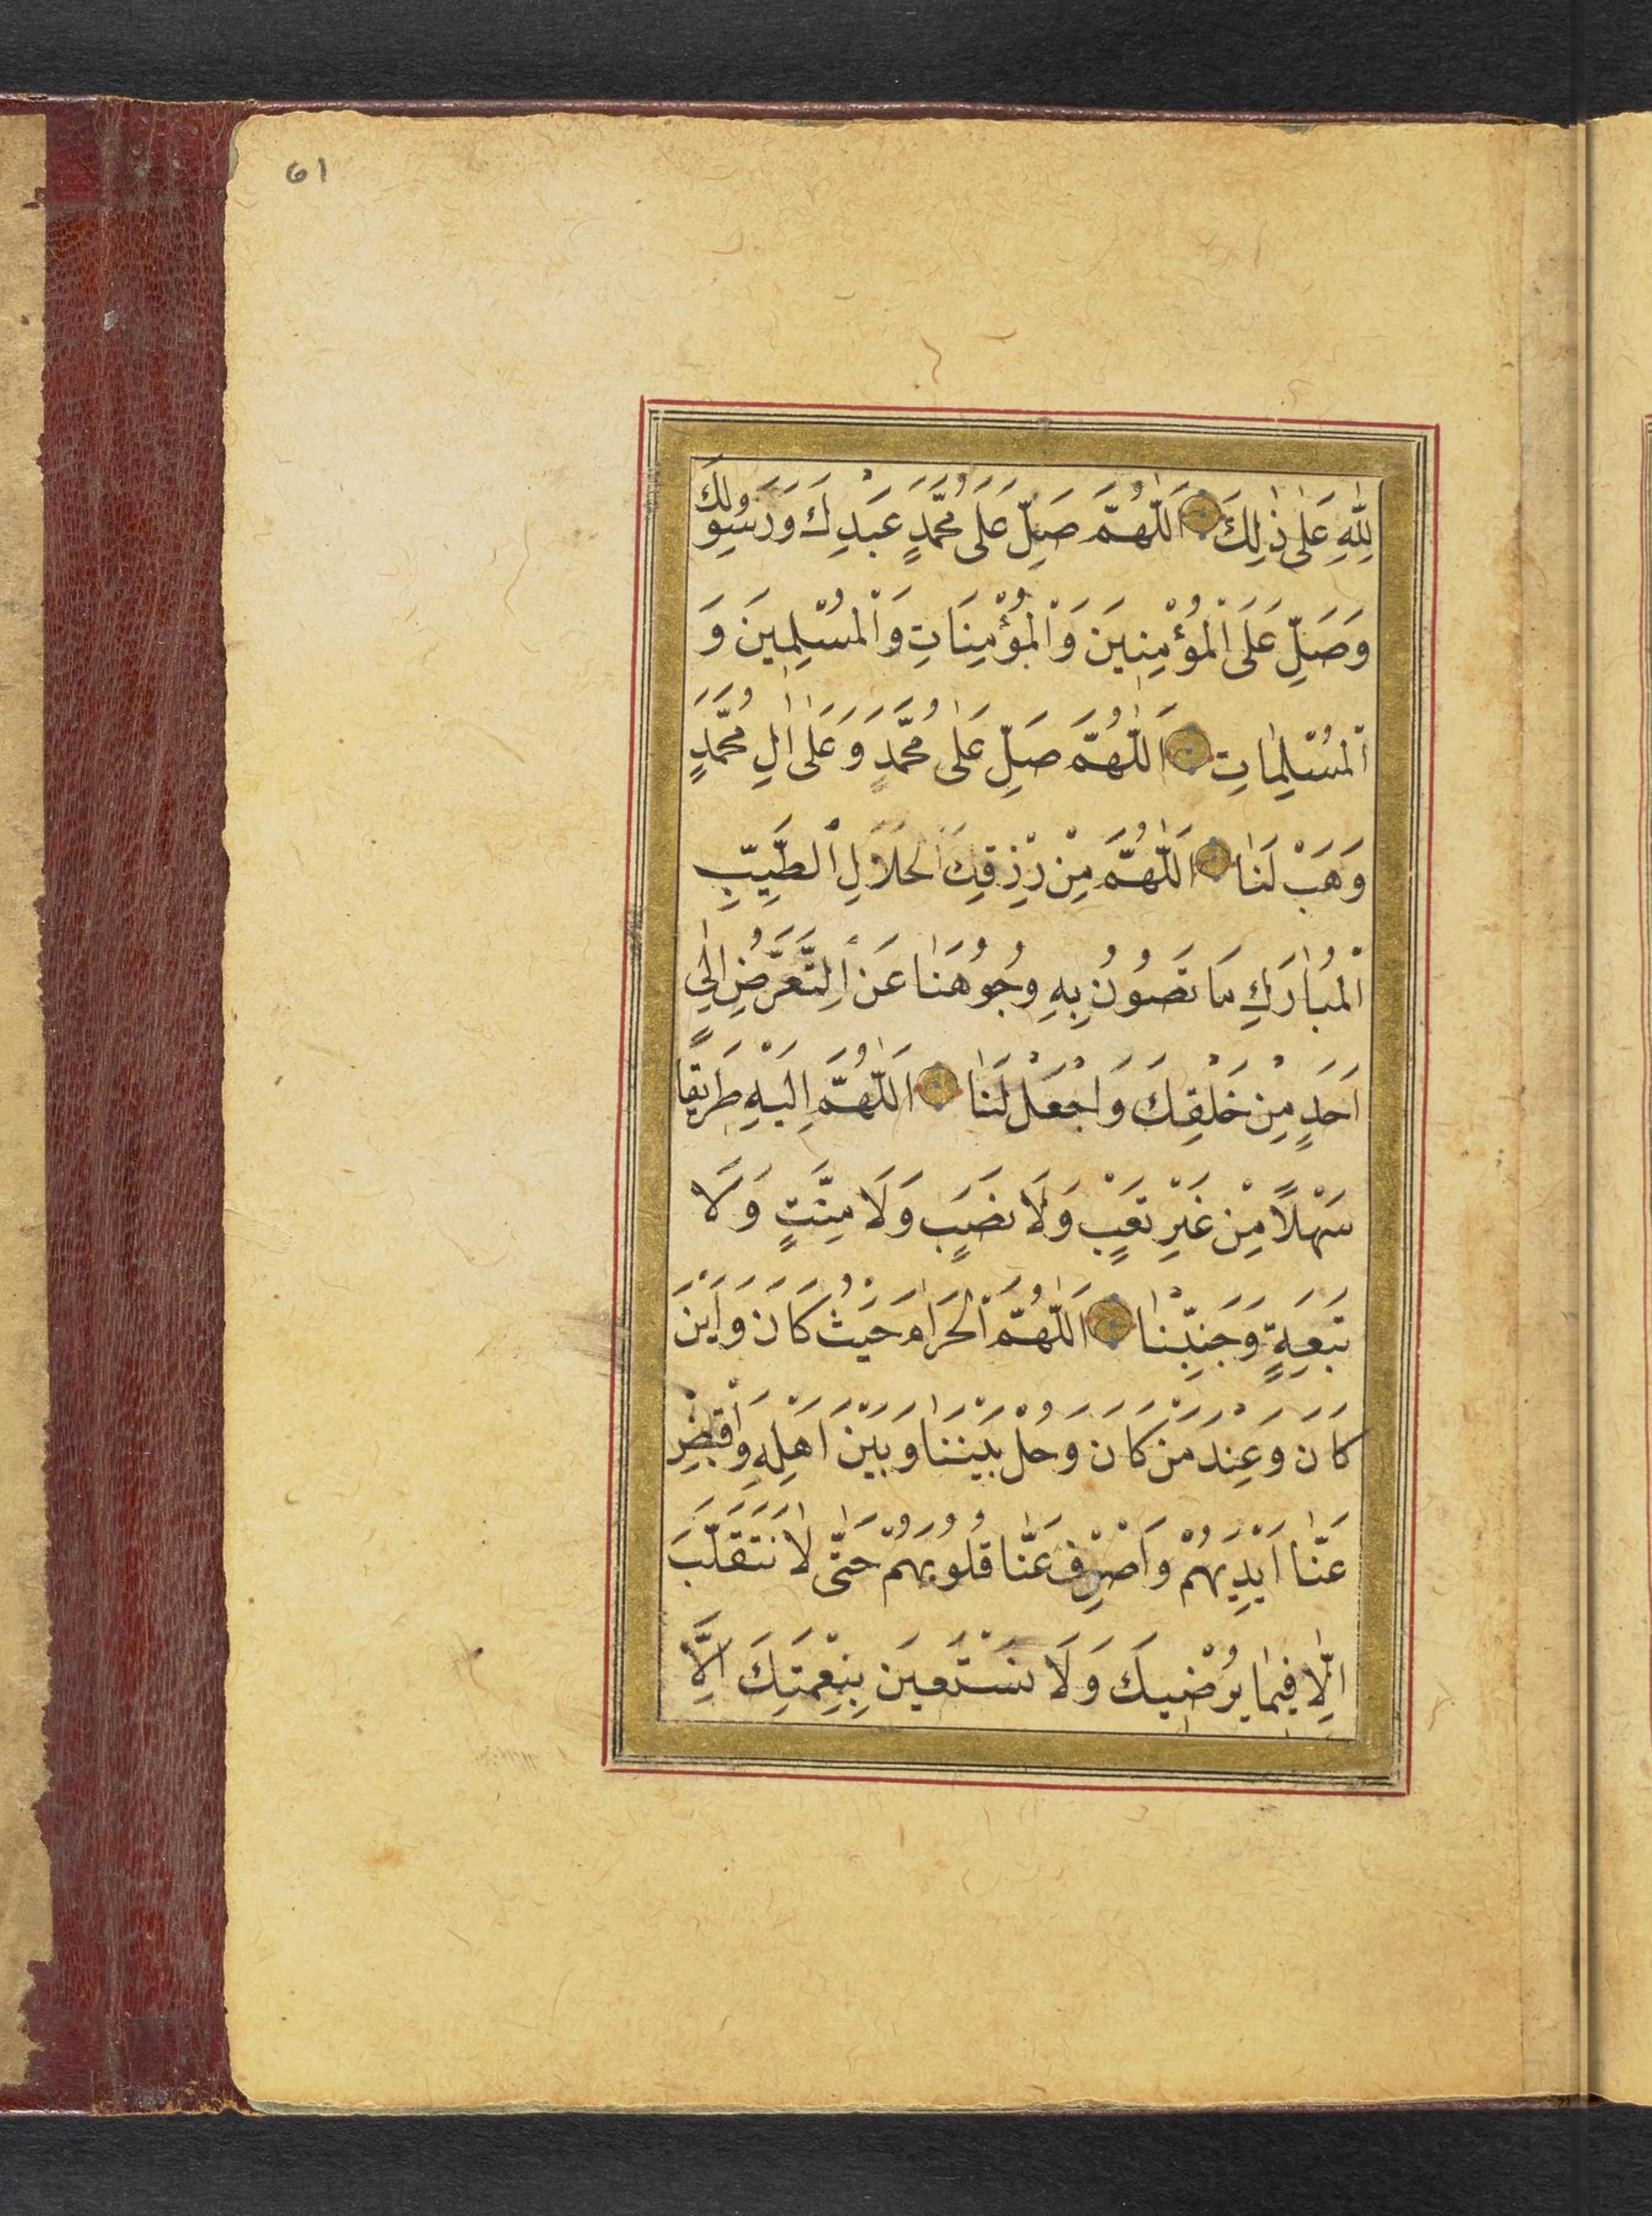 61
لِلّٰهِ عَلٰى ذٰلِكَ اَللّٰهُمَّ صَلِّ عَلٰى مُحَمَّدٍ عَبْدِكَ وَرَسُولِكَ
وَصَلِّ عَلَى الْمُؤْمِنِينَ وَالْمُؤْمِنَاتِ وَالْمُسْلِمِينَ وَ
الْمُسْلِمَاتِ اَللّٰهُمَّ صَلِّ عَلٰى مُحَمَّدٍ وَعَلٰى اٰلِ مُحَمَّدٍ
وَهَبْ لَنَا اَللّٰهُمَّ مِنْ رِزْقِكَ الْحَلَالِ الطَّيِّبِ
الْمُبَارَكِ مَا تَصُونُ بِهِ وُجُوهَنَا عَنِ التَّعَرُّضِ اِلٰى
اَحَدٍ مِنْ خَلْقِكَ وَاجْعَلْ لَنَا اَللّٰهُمَّ اِلَيْهِ طَرِيقًا
سَهْلًا مِنْ غَيْرِ تَعَبٍ وَلَا نَصَبٍ وَلَا مِنَّتٍ وَلَا
تَبِعَةٍ وَجَنِّبْنَا اَللّٰهُمَّ الْحَرَامَ حَيْثُ كَانَ وَاَيْنَ
كَانَ وَعِنْدَ مَنْ كَانَ وَحُلْ بَيْنَنَا وَبَيْنَ اَهْلِهِ وَاقْبِضْ
عَنَّا اَيْدِيَهُمْ وَاصْرِفْ عَنَّا قُلُوبَهُمْ حَتّٰى لَا نَتَقَلَّبَ
اِلَّا فِيمَا يُرْضِيكَ وَلَا نَسْتَعِينَ بِنِعْمَتِكَ اِلَّا